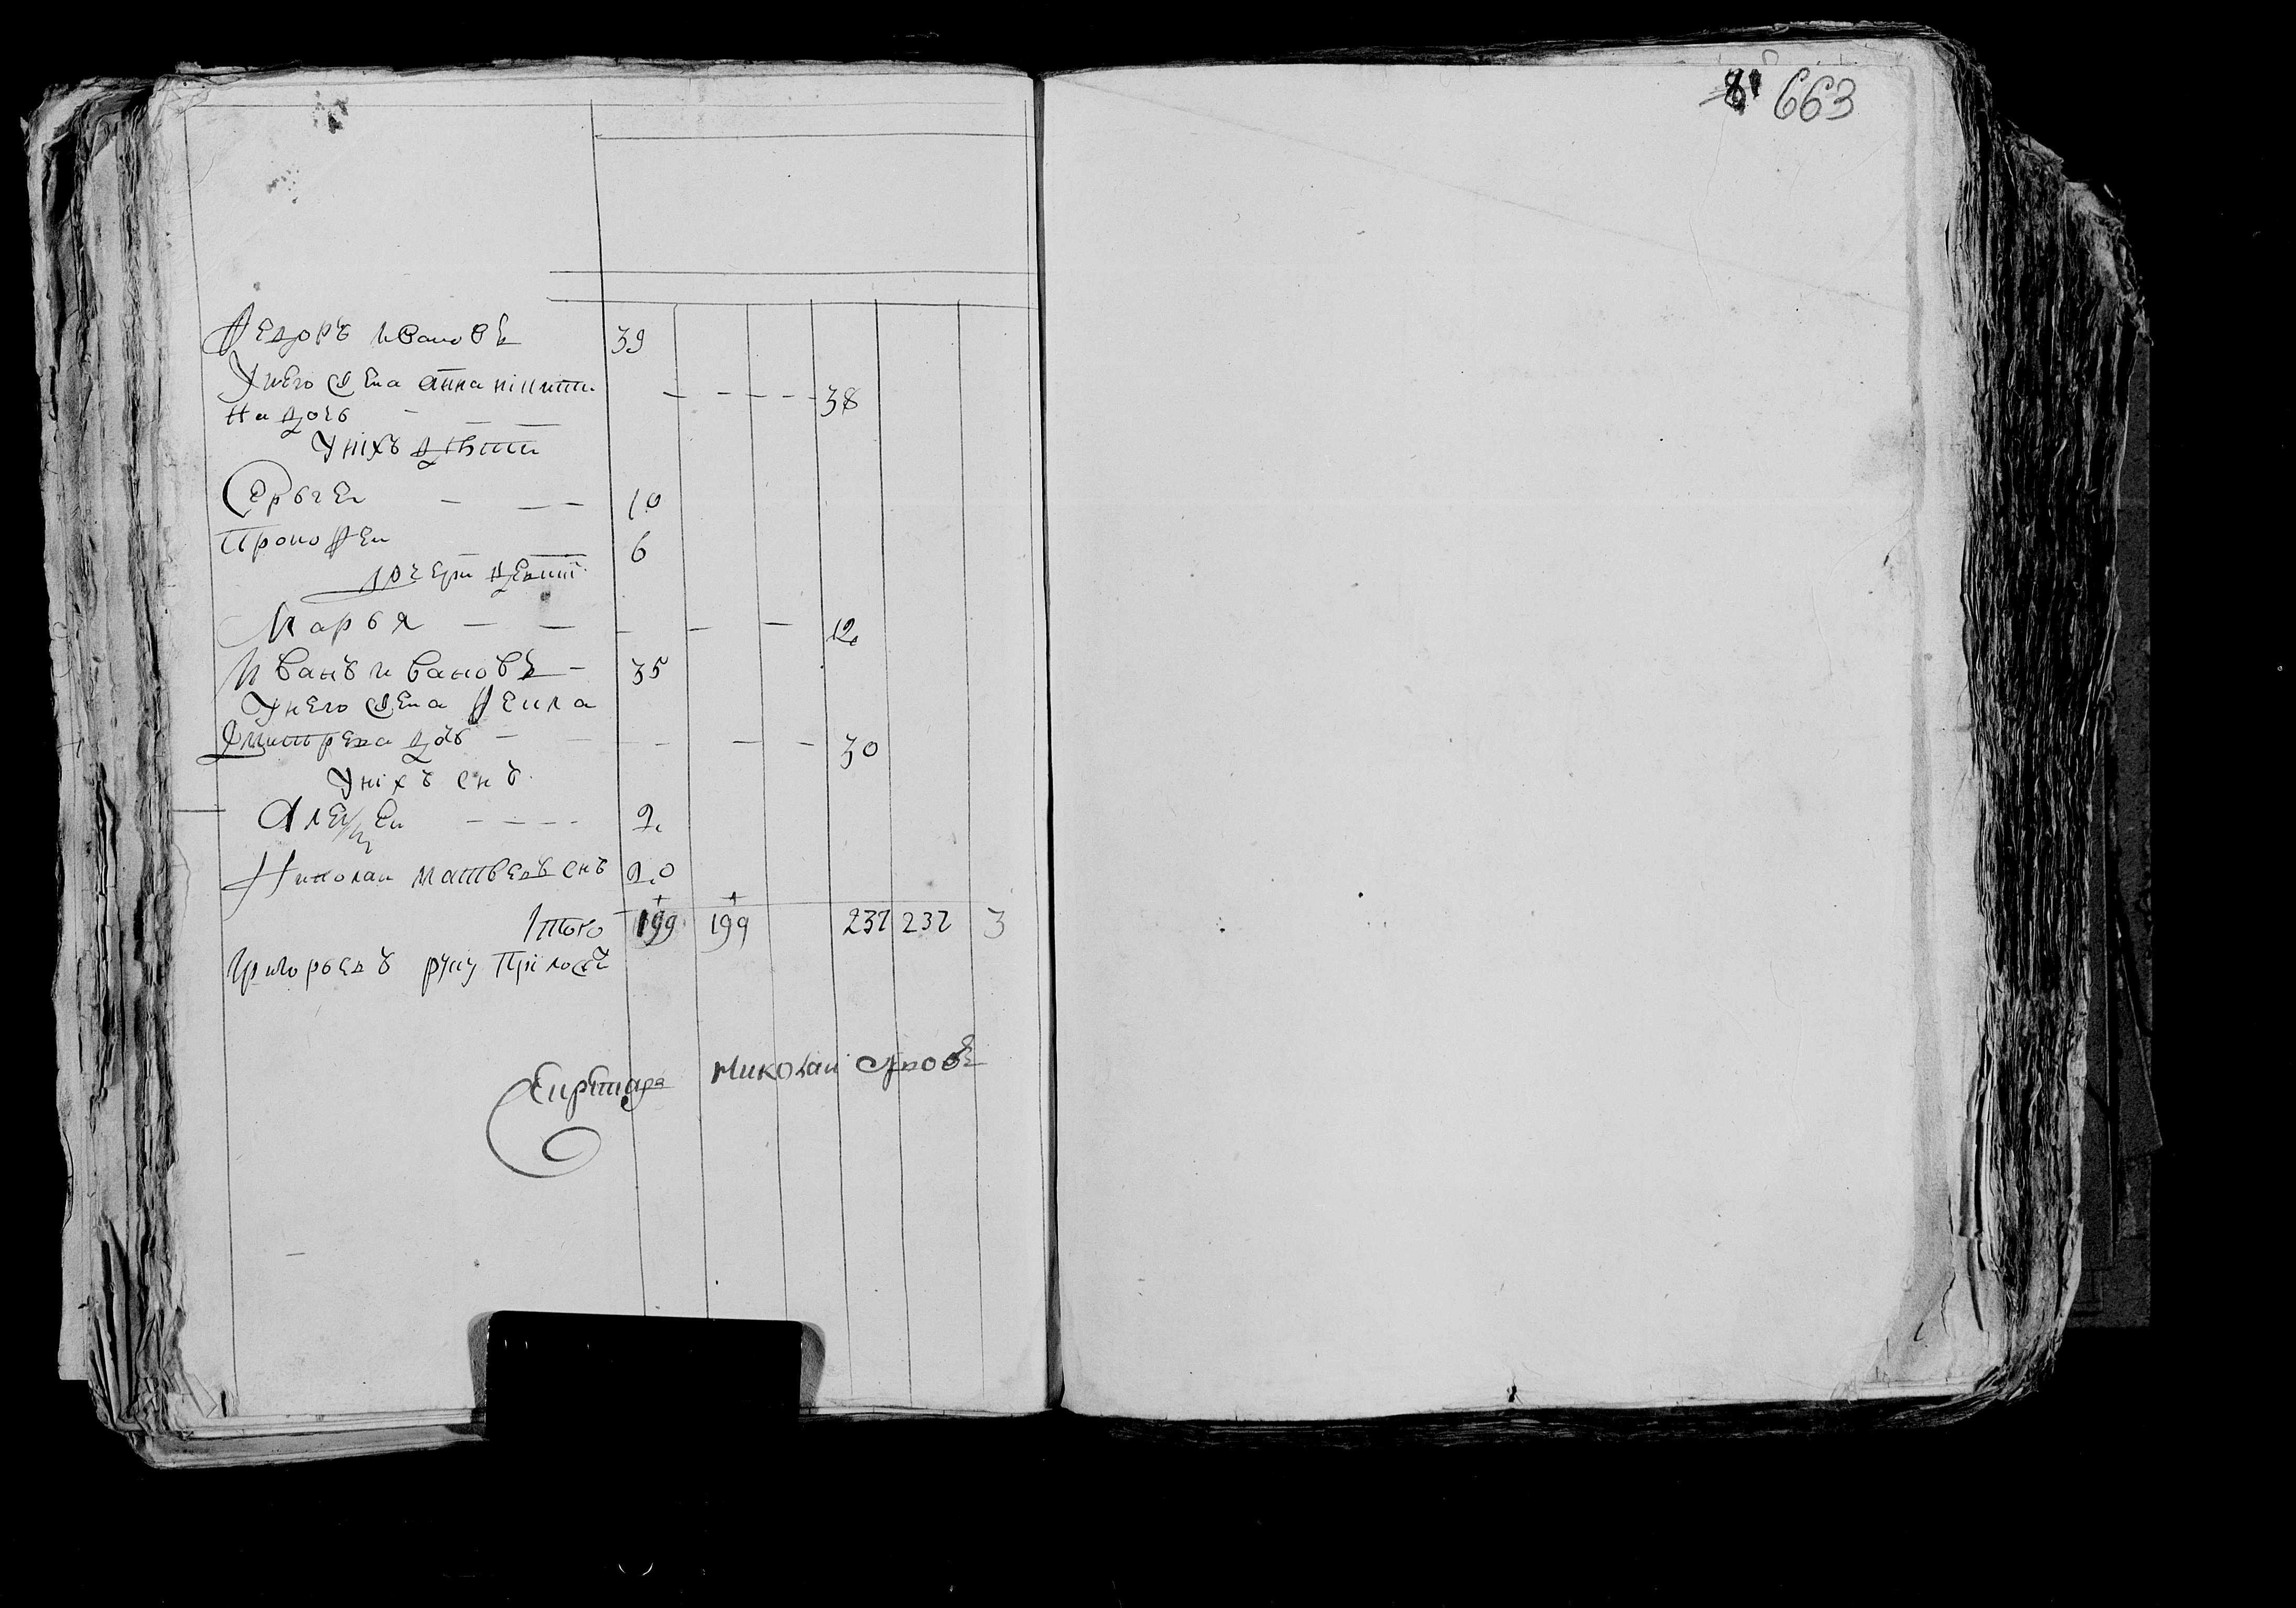 Федоръ ивановъ 39
Унего жена анна никити
на дочь 38
Уніхъ дѣти
Сергеи 10
Прокофеи 6
дочери девит
Марья 12
Иванъ ивановъ 35
Унего жена Фекла
Дмитрева дочь 30
Уніхъ снъ
Алексеи 2
Николаи матвеевъ снъ 20
Ітого 199 199 237 237 3
Григорьевъ руку Приложи
Николаи
8 663